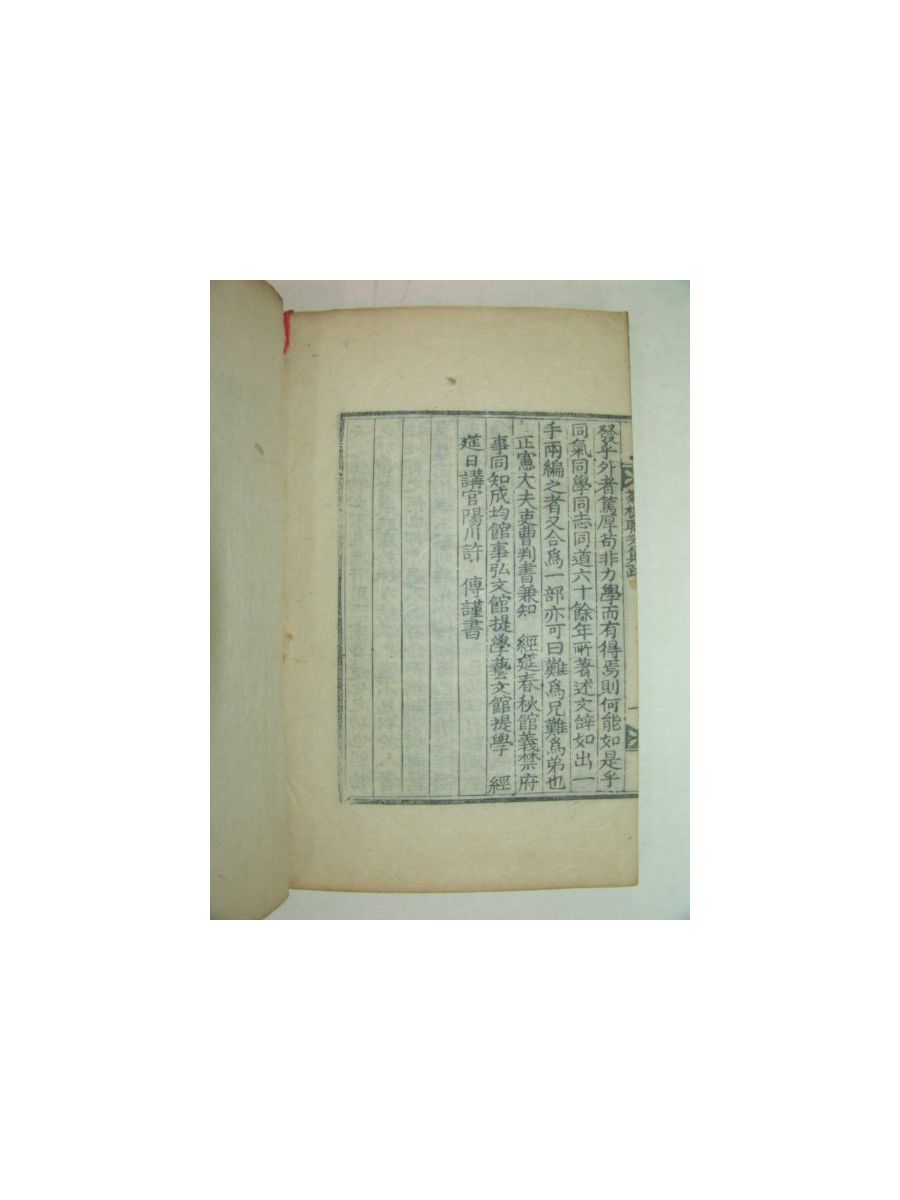 發乎外者篤厚苟非力學而有得焉則何能如是乎
同氣同學同志同道六十餘年所著述文辞如出一
手兩編之者又合爲一部亦可曰難爲兄難爲弟也
正憲大夫吏曹判書兼知 經筵春秋館義禁府
事同知成均館事弘文館提學藝文館提學 經
筵日講官陽川許 傳謹書